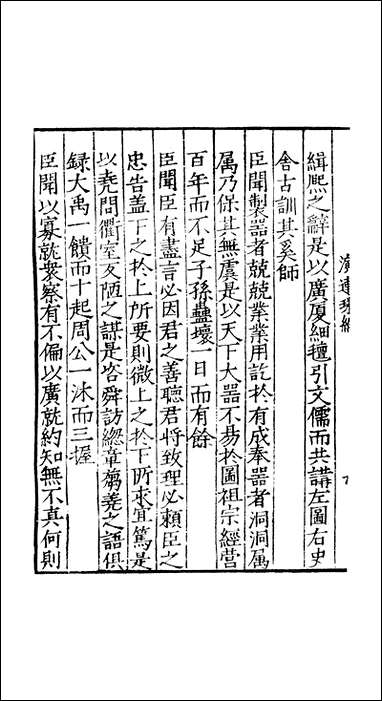 緝熈之辭是以廣厦細氊引文儒而共講左圖右史
舍古訓其奚師
臣聞製器者兢兢業業用託於有成奉器者洞洞属
属乃保其無虞是以天下大器不昜於圖祖宗經營
百年而不足子孫蠱壞一日而有餘
臣聞臣有盡言必因君之善聽君將致理必頼臣之
忠告盖下之於上所要則微上之於下所求宜篤是
以堯問衢室反陋之謀是咨舜訪緫章蒭蕘之語俱
録大禹一饋而十起周公一沐而三握
臣聞以寡就衆察有不偏以廣就約知無不真何則
演連珠編